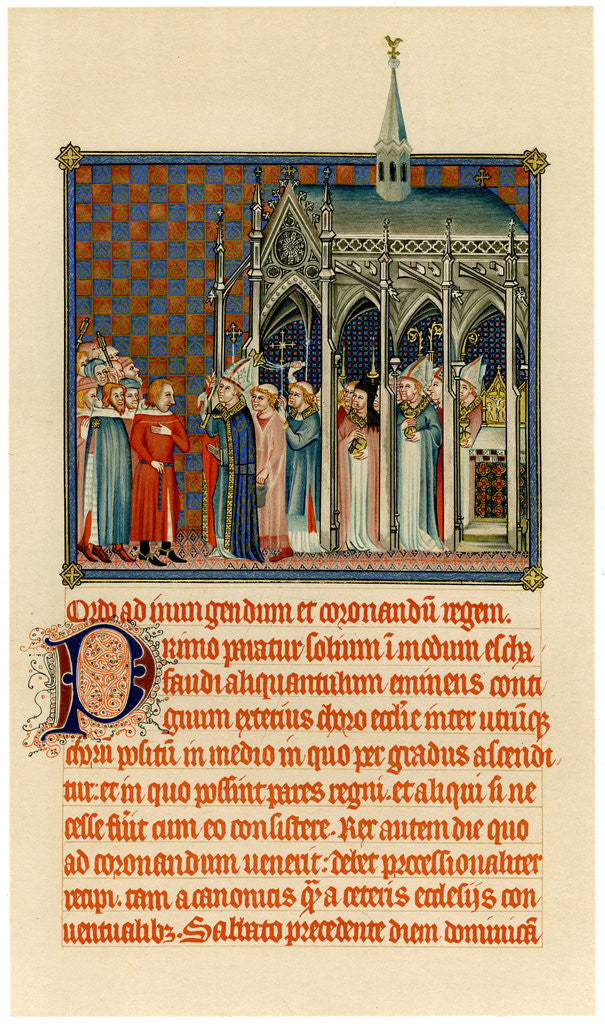 Ordo ad inungendum et coronandū regem.
Primo paratur solium ī modum escha
faudi aliquantulum eminens conti
guum exterius choro ecclīe inter utrūqꝫ
chorū positū in medio in quo per gradus ascendi
tur. et in quo possint pares regni. et aliqui si ne
cesse fūit cum eo consistere. Rex autem die quo
ad coronandum uenerit: debet processionaliter
recipi. tam a canonicis qᷓ a ceteris ecclesijs con
uentualibꝫ. Sabbato precedente diem dominicā